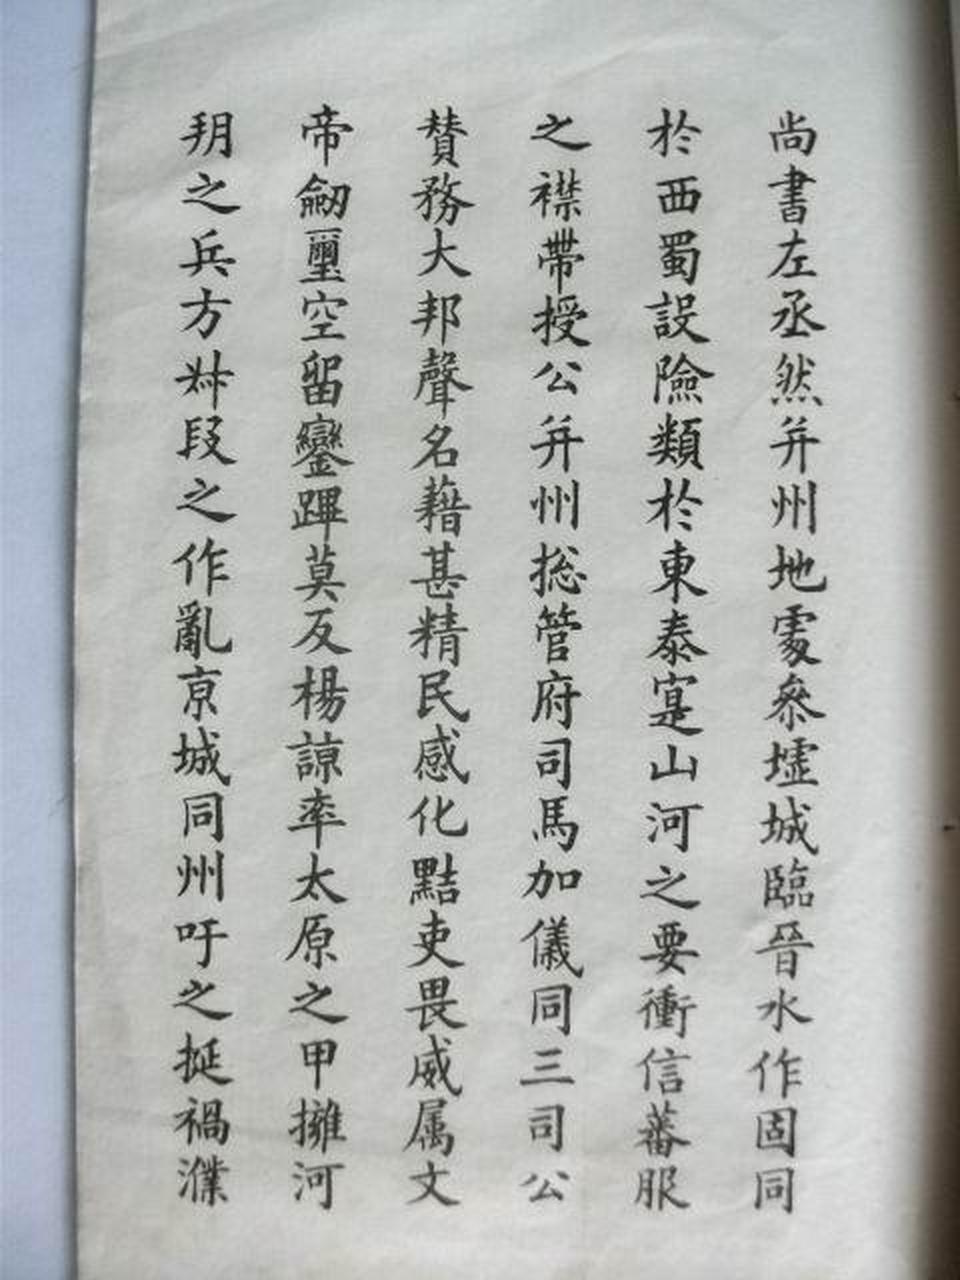 尚書左丞然并州地處叅墟城臨晉水作固同
於西蜀設險類於東秦寔山河之要衝信蕃服
之襟帶授公并州捴管府司馬加儀同三司公
賛務大邦聲名藉甚精民感化黠吏畏威属文
帝劒璽空留鑾蹕莫反楊諒率太原之甲擁河
朔之兵方叔段之作亂京城同州吁之挻禍濮